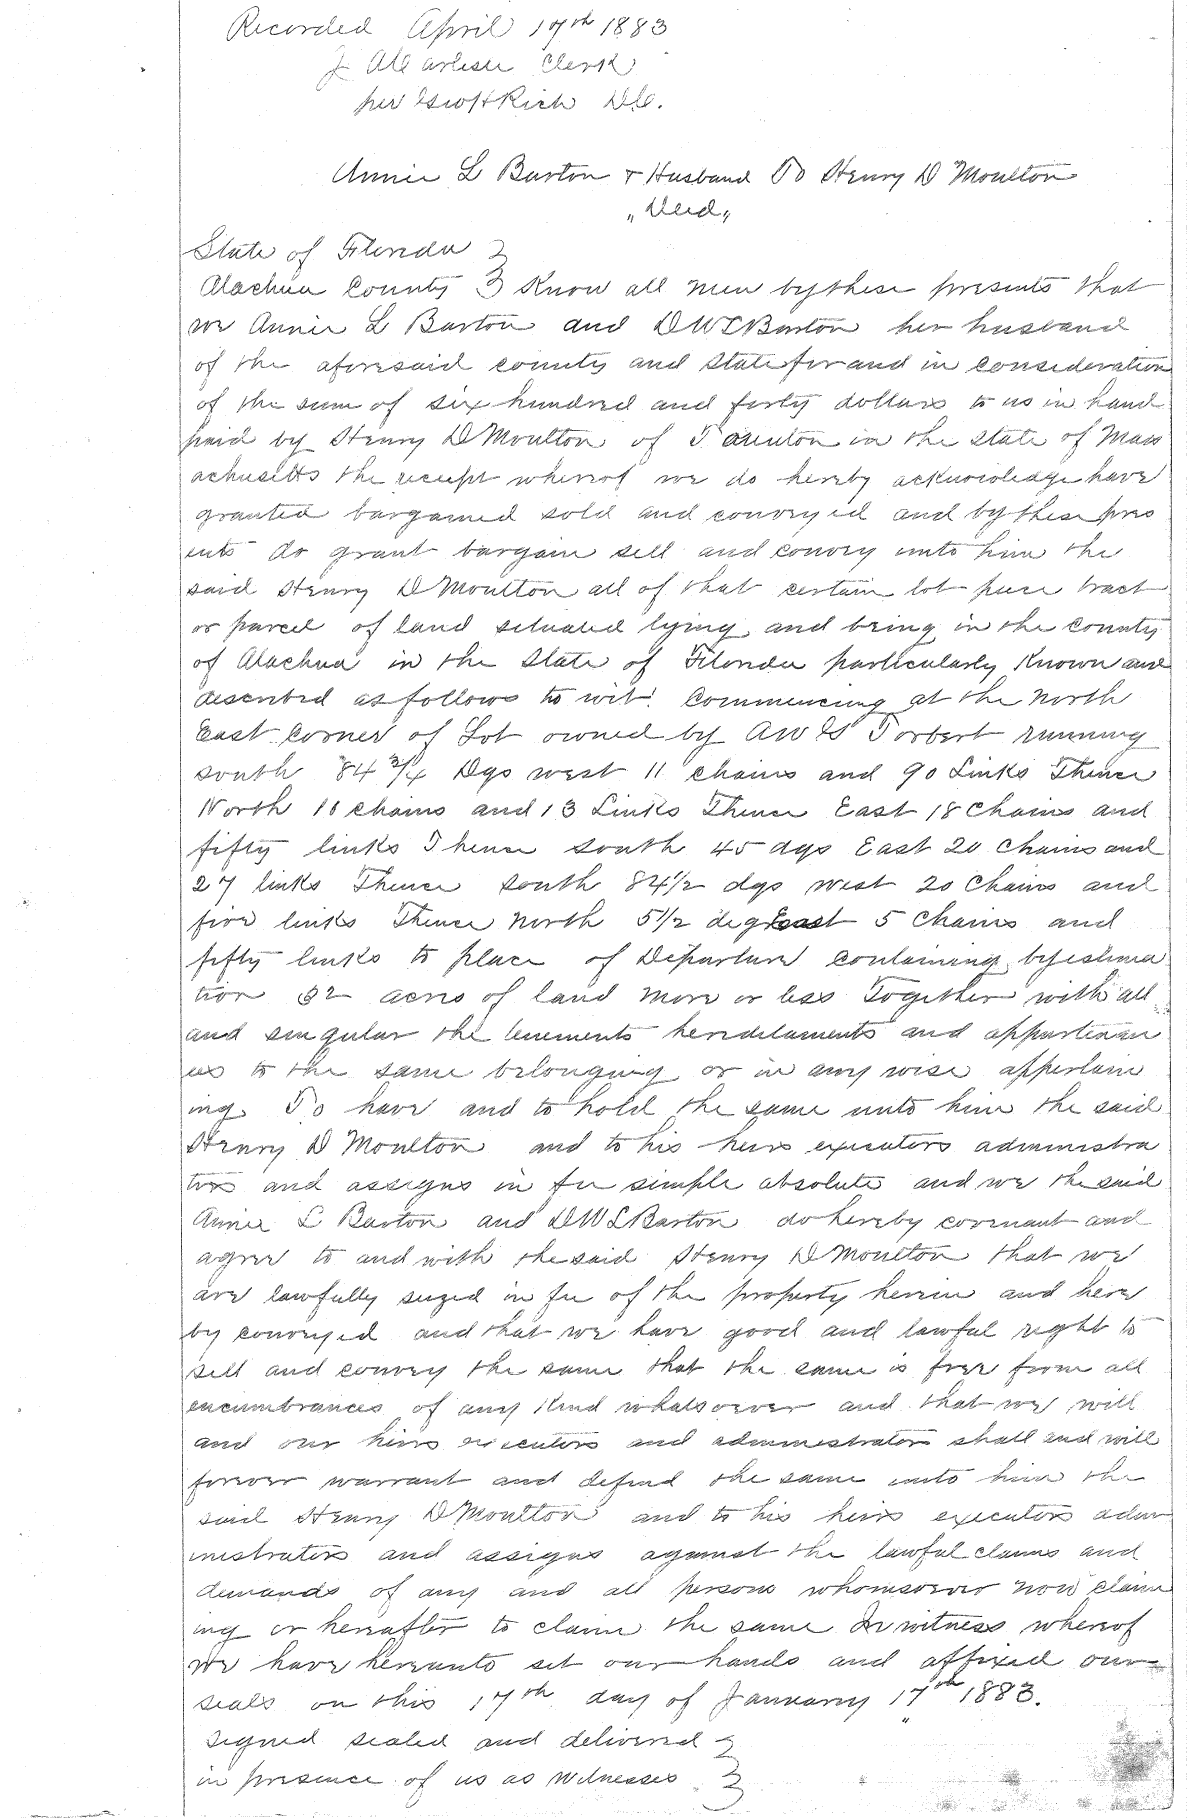 Recorded April 17th 1883
J A Carlisle Clerk
per Rich D.C.
Annie L Barton & Husband To Henry D Moulton
"Deed"
State of Florida }
Alachua County } Know all men by these presents that
we Annie L Barton and D W L Barton her husband
of the aforesaid county and State for and in consideration
of the sum of six hundred and forty dollars to us in hand
paid by Henry D Moulton of Taunton in the State of Mass
achusetts the receipt whereof we do hereby acknowledge have
granted bargained sold and conveyed and by these pres
ents do grant bargain sell and convey unto him the
said Henry D Moulton all of that certain lot piece tract
or parcel of land situated lying and being in the county
of Alachua in the State of Florida particularly Known and
described as follows to wit. Commencing at the North
East Corner of Lot owned by A W Torbert running
south 84 3/4 Dgs west 11 chains and 90 Links Thence
North 10 chains and 13 Links Thence East 18 Chains and
fifty links Thence south 45 dgs East 20 Chains and
27 links Thence South 84 1/2 dgs west 20 Chains and
five links Thence North 5 1/2 deg East 5 Chains and
fifty links to place of Departure containing by estima
tion 32 acres of land more or less Together with all
and singular the tenements hereditaments and appurtenan
ces to the same belonging or in any wise appertain
ing. To have and to hold the same unto him the said
Henry D Moulton and to his heirs executors administra
tors and assigns in fee simple absolute and we the said
Annie L Barton and D W L Barton do hereby covenant and
agree to and with the said Henry D Moulton that we
are lawfully seized in fee of the property herein and here
by conveyed and that we have good and lawful right to
sell and convey the same that the same is free from all
encumbrances of any Kind whatsoever and that we will
and our heirs executors and administrators shall and will
forever warrant and defend the same unto him the
said Henry D Moulton and to his heirs executors adm
inistrators and assigns against the lawful claims and
demands of any and all persons whomsoever now claim
ing or hereafter to claim the same In witness whereof
we have hereunto set our hands and affixed our
seals on this 17th day of January 17th 1883.
Signed sealed and delivered }
in presence of us as witnesses }